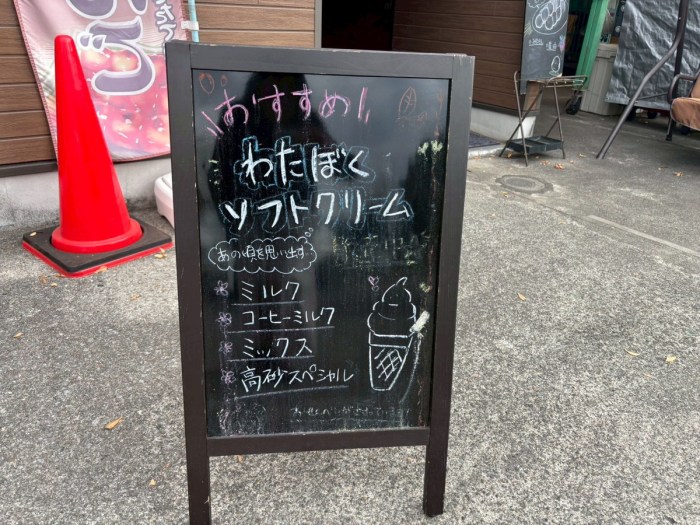 おすすめ!
わたぼく
ソフトクリーム
あの頃を思い出す
ミルク
コーヒーミルク
ミックス
高砂スペシャル